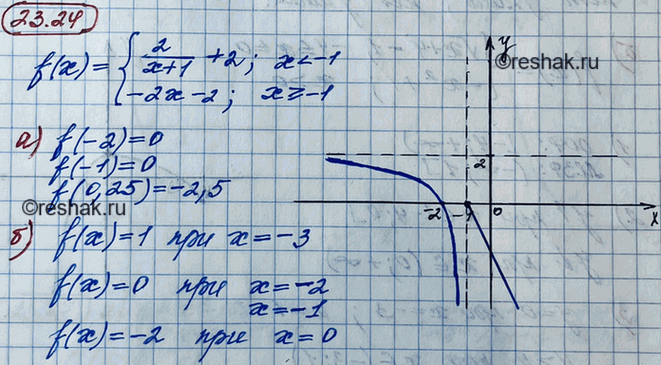 23.24
f(x) = { 2/(x+1) + 2; x < -1
-2x - 2; x ≥ -1
а) f(-2) = 0
f(-1) = 0
f(0,25) = -2,5
б) f(x) = 1 при x = -3
f(x) = 0 при x = -2
x = -1
f(x) = -2 при x = 0
y
2
-2 -1 0 x
©reshak.ru
©reshak.ru
©reshak.ru